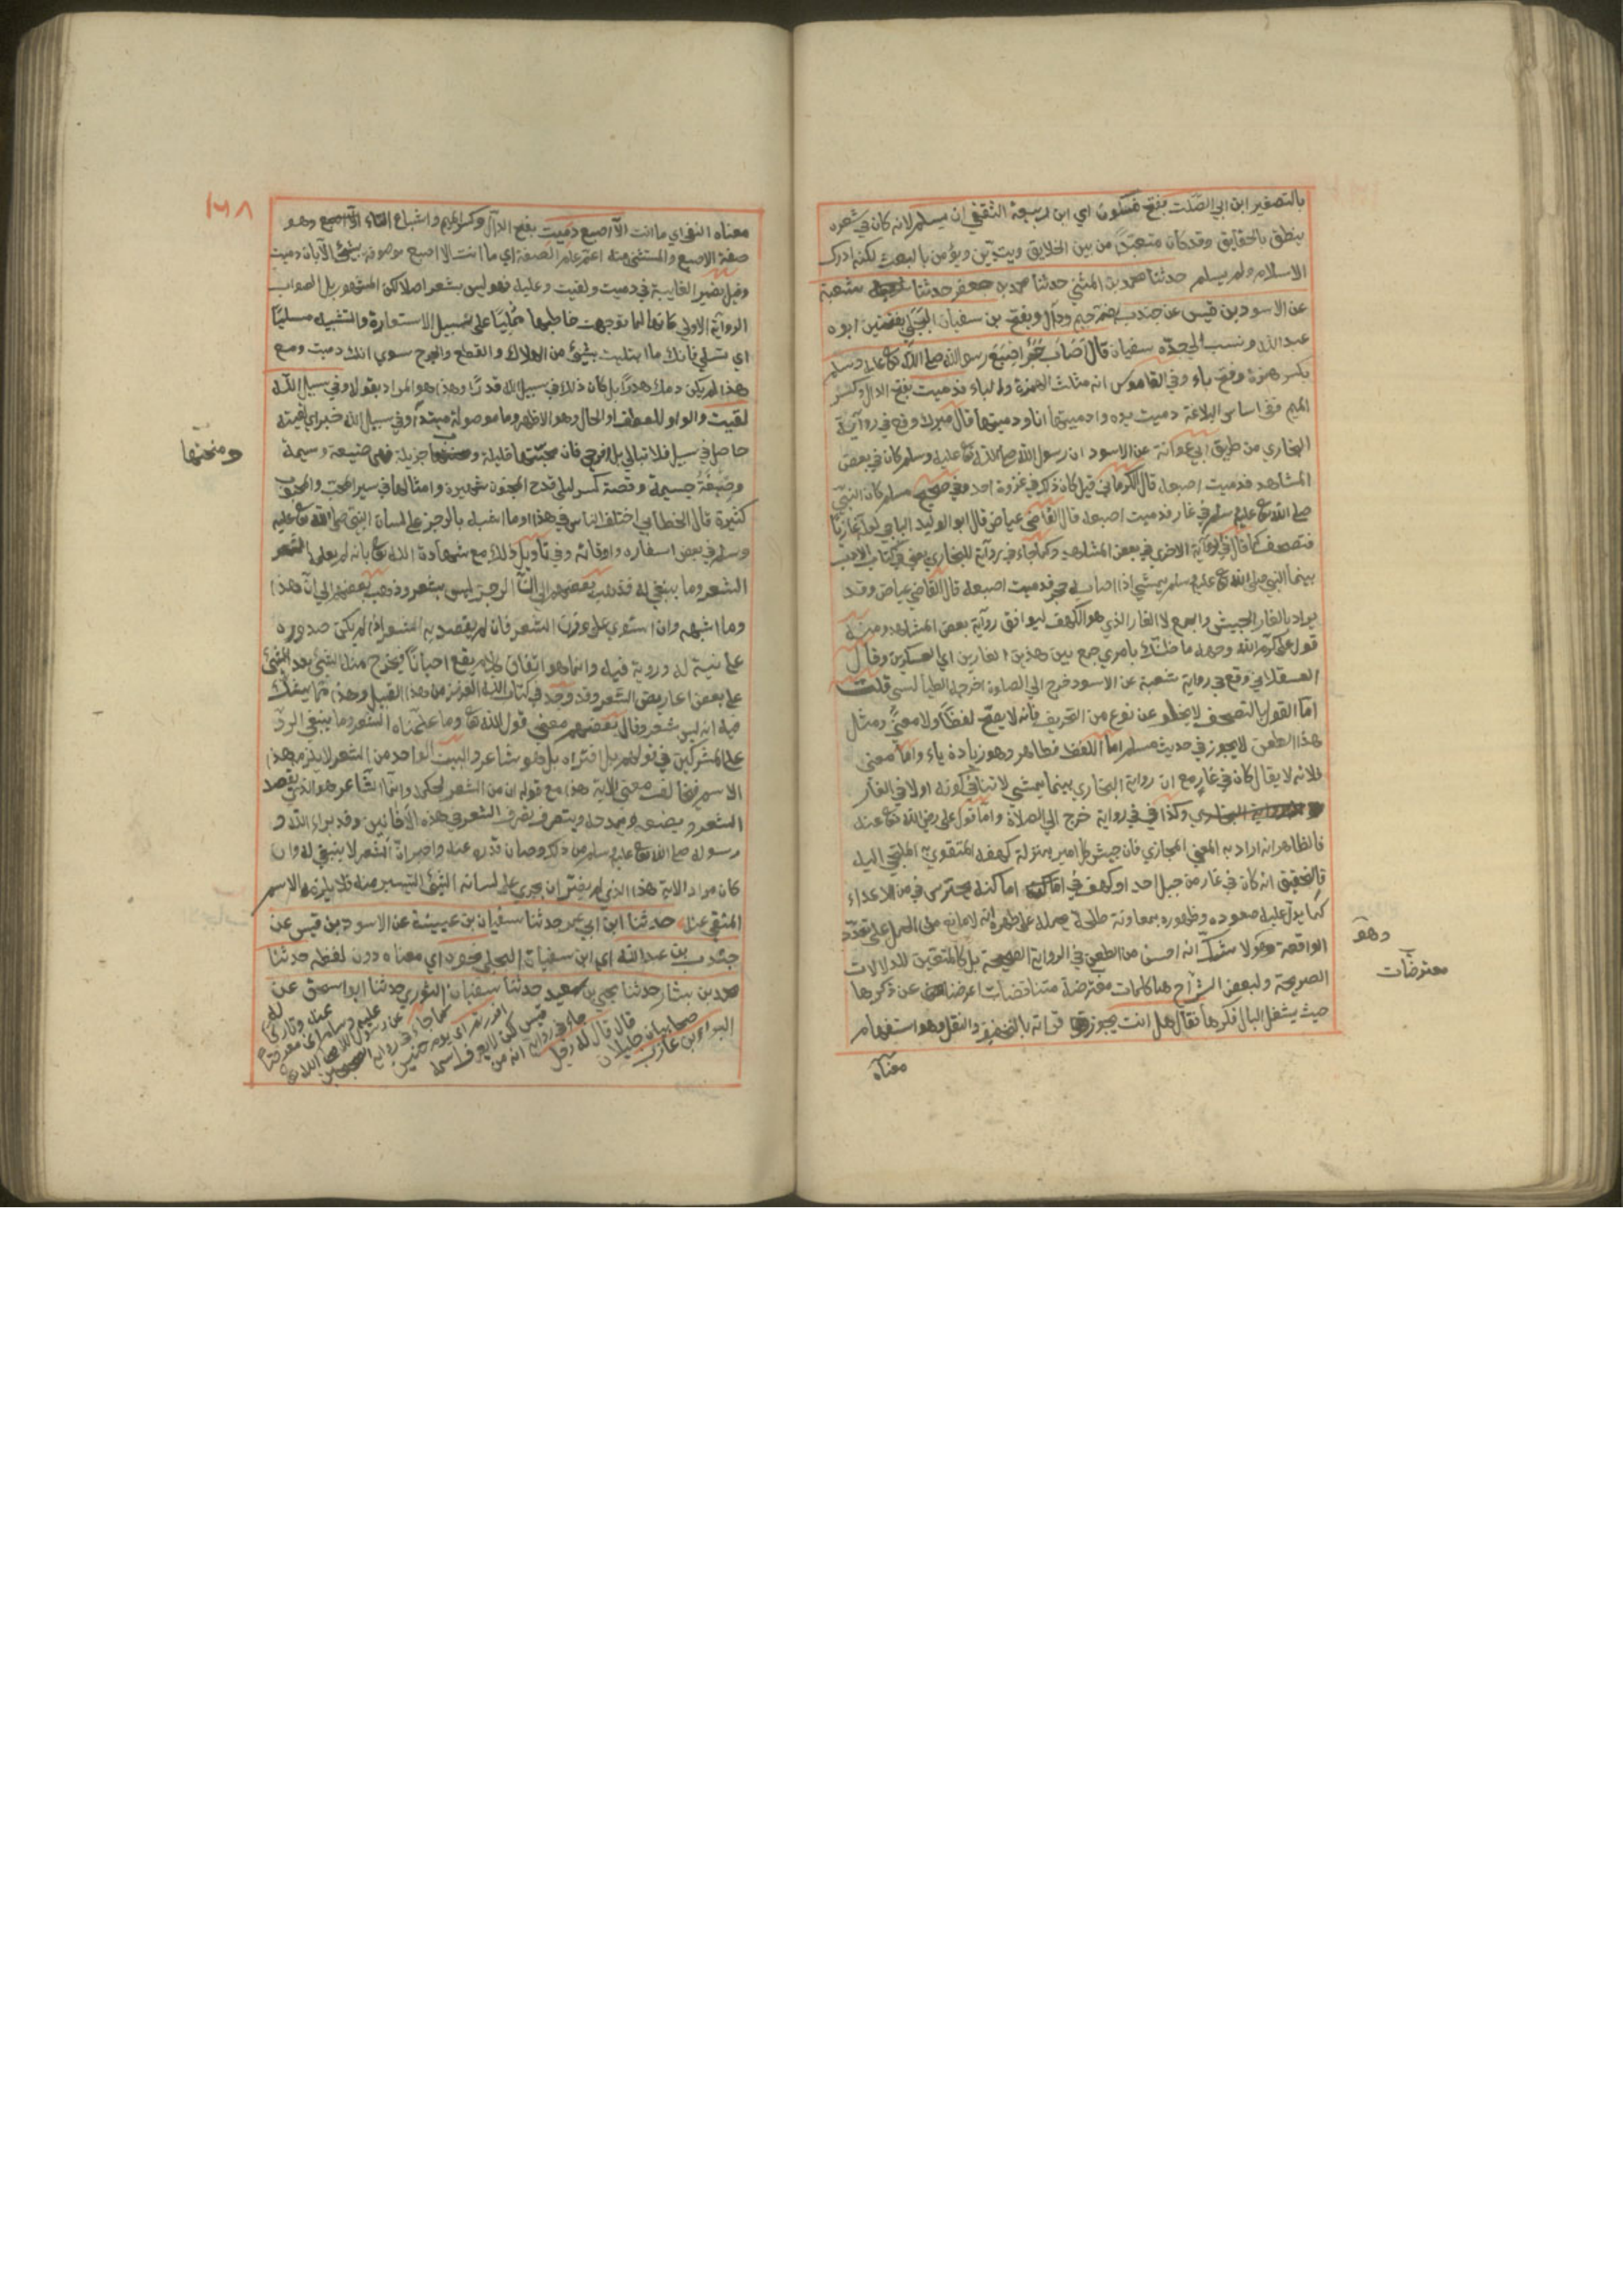 بالتصغير ابن ابي الصلت بفتح فسكون اي ابن ربيعة الثقفي ان يسلم لانه كان في شعره
ينطق بالحقايق وقد كان متعبدا من بين الخلايق ويتدين ويؤمن بالبعث لكنه ادرك
الاسلام ولم يسلم حدثنا محمد بن المثني حدثنا محمد بن جعفر حدثنا شعبة
عن الاسود بن قيس عن جندب بضم جيم ودال ويفتح بن سفيان البجلي بفتحتين ابوه
عبد الله ونسب الي جده سفيان قال اصاب حجر اصبع رسول الله صلي الله تع عليه وسلم
بكسر همزة وفتح باء وفي القاموس انه مثلث الهمزة والباء فدميت بفتح الدال وكسر
الميم ففي اساس البلاغة دميت يده وادميتها انا ودميتها قال ميرك وقع في رواية
البخاري من طريق ابي عوانة عن الاسود ان رسول الله صلي الله تع عليه وسلم كان في بعض
المشاهد فدميت اصبعه قال الكرماني قيل كان ذلك في غزوة احد وفي صحيح مسلم كان النبي
صلي الله تع عليه وسلم في غار فدميت اصبعه قال القاضي عياض قال ابو الوليد الباجي لعله غازيا
فتصحف كما قال في الرواية الاخري في بعض المشاهد وكما جاء في رواية للبخاري يعني في كتاب الادب
بينما النبي صلي الله تع عليه وسلم يمشي اذ اصابه حجر فدميت اصبعه قال القاضي عياض وقد
يراد بالغار الجيش والجمع لا الغار الذي هو الكهف ليوافق رواية بعض المشاهد ومنه
قول علي كرم الله وجهه ما ظنك بامري جمع بين هذين الغارين اي العسكرين وقال
العسقلاني وقع في رواية شعبة عن الاسود خرج الي الصلوة اخرجه الطيالسي قلت
اما القول بالتصحف لا يخلو عن نوع من التحريف فانه لا يصح لفظا ولا معني ومثل
هذا الطعن لا يجوز في حديث مسلم اما اللفظ فظاهر وهو زيادة ياء واما معني
فلانه لا يقال كان في غار مع ان رواية البخاري بينما يمشي لا تنافي كونه اولا في الغار
وكذا في رواية خرج الي الصلاة واما قول علي رضي الله تع عنه
فالظاهر انه اراد به المعني المجازي فان جيش كل امير بمنزلة كهفه المتقوي به الملتجي اليه
فالتحقيق انه كان في غار من جبل احد او كهف في اماكنه يحترس فيه من الاعداء
كما يدل عليه صعوده وظهوره بمعاونة طلحة حمله علي ظهره لانه لا مانع من الحمل علي تعدد
الواقعة وهو لا شك انه احسن من الطعن في الرواية الصحيحة بل كالمتعين للدلالات
الصريحة ولبعض الشراح هنا كلمات معترضة متناقضات اعرضنا عن ذكرها
حيث يشغل البال فكرها فقال هل انت يجوز قراته بالتخفيف والنقل وهو استفهام
وهو
معترضات
معناه
١٦٨
معناه النفي اي ما انت الا اصبع دميت بفتح الدال وكسر الميم واشباع التاء وهو
صفة الاصبع والمستثني منه اعم عام الصفة اي ما انت الا اصبع موصوفة بشئ الا بان دميت
وقيل بضمير الغايبة في دميت ولقيت وعليه فهو ليس بشعر اصلا لكن المشهور بل الصواب
الرواية الاولي كانها لما توجهت خاطبها علي سبيل الاستعارة والتشبيه مسليا
اي تسلي فانك ما ابتليت بشئ من الهلاك والقطع والجرح سوي انك دميت ومع
هذا لم يكن دمك هدرا بل كان ذلك في سبيل الله قدرا وهذا هو المراد بقوله وفي سبيل الله
لقيت والواو للعطف او الحال وهو الاظهر وما موصولة مبتدأ وفي سبيل الله خبر اي لقيته
حاصل في سبيل فلا تبالي بل افرحي فان محنتها قليلة جزيلة فهي صنيعة وسيمة
وصبغة جسيمة وقصة كسر ليلي قدح المجنون شهيرة وامثالها في سير المحب والمحبوب
كثيرة قال الخطابي اختلف الناس في هذا وما اشبه بالرجز علي لسان النبي صلي الله تع عليه
وسلم في بعض اسفاره واوقاته وفي تاويل ذلك مع شهادة الله تع بانه لم يعلمه الشعر
الشعر وما ينبغي له فذهب بعضهم الي ان الرجز ليس بشعر وذهب بعضهم الي ان هذا
وما اشبهه وان استوي علي وزن الشعر فان لم يقصد به الشعر اذ لم يكن صدوره
علي نية له وروية فيه وانما هو اتفاق كلام يقع احيانا فيخرج منه الشئ بعد الشئ
علي بعض اعاريض الشعر وقد وجد في كتاب الله العزيز من هذا القبيل وهذا مما يشك
فيه انه ليس شعر وقال بعضهم معني قول الله تع وما علمناه الشعر وما ينبغي الرد
علي المشركين في قولهم بل افتراه بل هو شاعر والبيت الواحد من الشعر لا يلزمه هذا
الاسم فيخالف معني الاية هذا مع قوله ان من الشعر لحكمة وانما الشاعر هو الذي يقصد
الشعر ويضعه ويمدحه ويتصرف تصرف الشعر في هذه الافانين وقد برا الله و
رسوله صلي الله تع عليه وسلم من ذلك وصان قدره عنه واخبر ان الشعر لا ينبغي له وان
كان مراد الاية هذا الذي لم يضر ان يجري علي لسانه الشئ اليسير منه فلا يلزمه الاسم
المنفي عنه حدثنا ابن ابي عمر حدثنا سفيان بن عيينة عن الاسود بن قيس عن
جندب بن عبد الله اي ابن سفيان البجلي نحوه اي معناه دون لفظه حدثنا
محمد بن بشار حدثنا يحيي بن سعيد حدثنا سفيان الثوري حدثنا ابو اسحق عن
البراء بن عازب
صحابيان جليلان
قال قال له رجل
جاء في رواية انه من
قيس لكن لا يعرف اسمه
افررتم اي يوم حنين
كما جاء في رواية
عن رسول الله صلي الله تع
عليه وسلم
ومنحتها